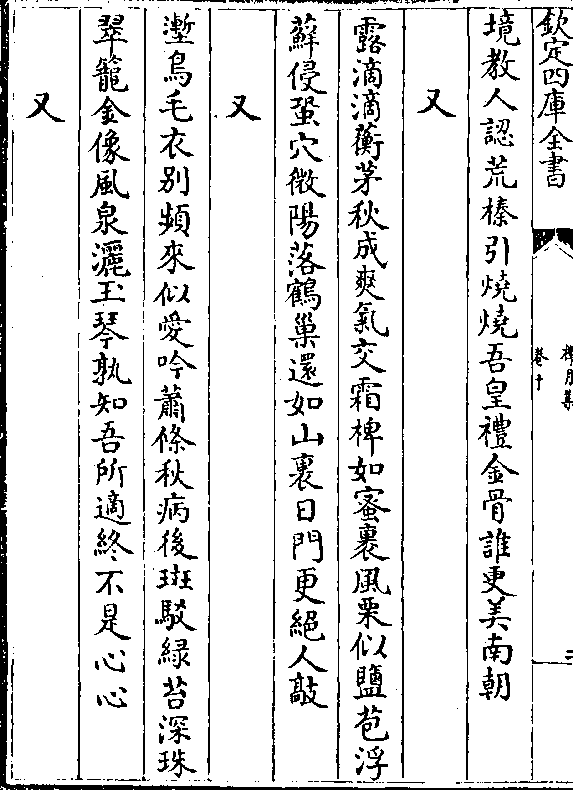 欽定四庫全書
禪月集
卷十
二
境教人認荒榛引燒燒吾皇禮金骨誰更美南朝
又
露滴滴蘅茅秋成爽氣交霜椑如蜜裹風栗似鹽苞浮
蘚侵蛩穴微陽落鶴巢還如山裏日門更絕人敲
又
塹鳥毛衣别頻來似愛吟蕭條秋病後斑駁緑苔深珠
翠籠金像風泉灑玉琴孰知吾所適終不是心心
又